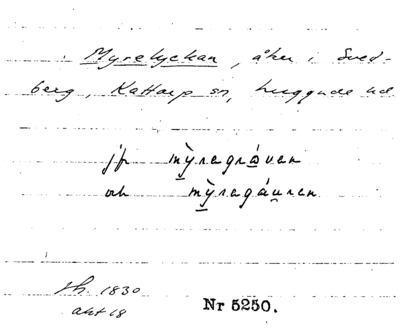 Myrelyckan, åker i Sved-
berg, Kattarp sn, Luggude hd
jfr mỳragråvan
och mỳragáuren
Lh. 1830
akt 18
Nr 5250.